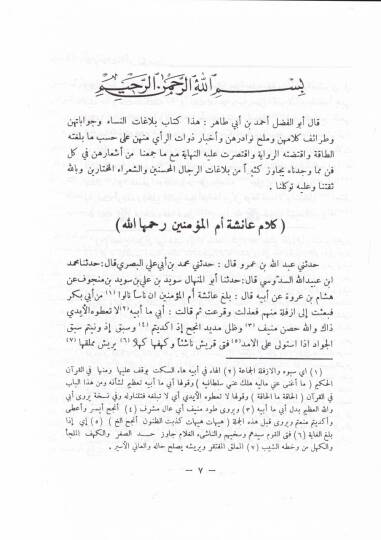 بسم الله الرحمن الرحيم
قال أبو الفضل أحمد بن أبي طاهر : هذا كتاب بلاغات النساء وجواباتهن
وطرائف كلامهن وملح نوادرهن وأخبار ذوات الرأي منهن على حسب ما بلغته
الطاقة واقتضته الرواية واقتصرت عليه النهاية مع ما جمعنا من أشعارهن في كل
فن مما وجدناه يجاوز كثيراً من بلاغات الرجال المحسنين والشعراء المختارين وبالله
ثقتنا وعليه توكلنا .
( كلام عائشة أم المؤمنين رحمها الله )
حدثني عبد الله بن عمرو قال : حدثني محمد بن أبي علي البصري قال : حدثنا محمد
ابن عبيد الله السدوسي قال : حدثنا أبو المنهال سويد بن علي بن سويد بن منجوف عن
هشام بن عروة عن أبيه قال : بلغ عائشة أم المؤمنين ان ناساً نالوا (١) من أبي بكر
فبعثت إلى ازفلة منهم فعذلت وقرعت ثم قالت : أبي ما أبيه (٢) لا تعطوه الأيدي
ذاك والله حصن منيف (٣) وظل مديد أنجح إذ اكديتم (٤) وسبق إذ ونيتم سبق
الجواد اذا استولى على الامد (٥) فتى قريش ناشئاً وكهفها كهلا (٦) يريش مملقها (٧)
(١) اي سبوه والازفلة الجماعة (٢) الهاء في أبيه هاء السكت يوقف عليها ومنها في القرآن
الحكيم ( ما أغنى عني ماليه هلك عني سلطانيه ) وقولها أبي ما أبيه تعظيم لشأنه ومن هذا الباب
في القرآن ( الحاقة ما الحاقة ) وقولها لا تعطوه الأيدي أي لا تبلغه فتتناوله وفي نسخة يروى أبي
والله العظيم بدل أبي ما أبيه (٣) ويروى طود منيف أي عال مشرف (٤) أنجح أيسر وأعطى
وأكديتم منعتم ويروى قبل هذه الجملة ( هيهات هيهات كذبت الظنون أنجح الخ ) (٥) إي إذا
بلغ الغاية (٦) فتى القوم سيدهم وسخيهم والناشىء الغلام جاوز حد الصغر والكهف الملجأ
والكهل من وخطه الشيب (٧) الملق المفتقر ويريشه يصلح حاله والعاني الأسير .
— ٧ —